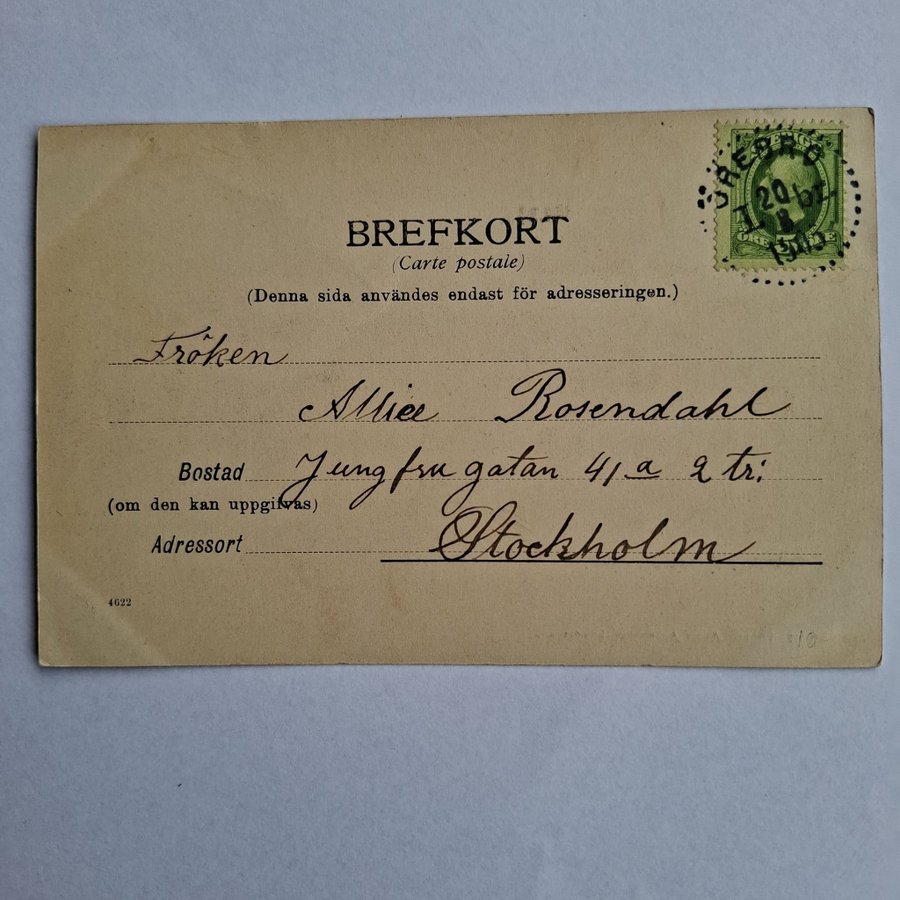 ÖREBRO
20
8
1903
BREFKORT
(Carte postale)
(Denna sida användes endast för adresseringen.)
Fröken
Allice Rosendahl
Bostad Jungfrugatan 41a 2 tr:
(om den kan uppgifvas)
Adressort Stockholm
4622